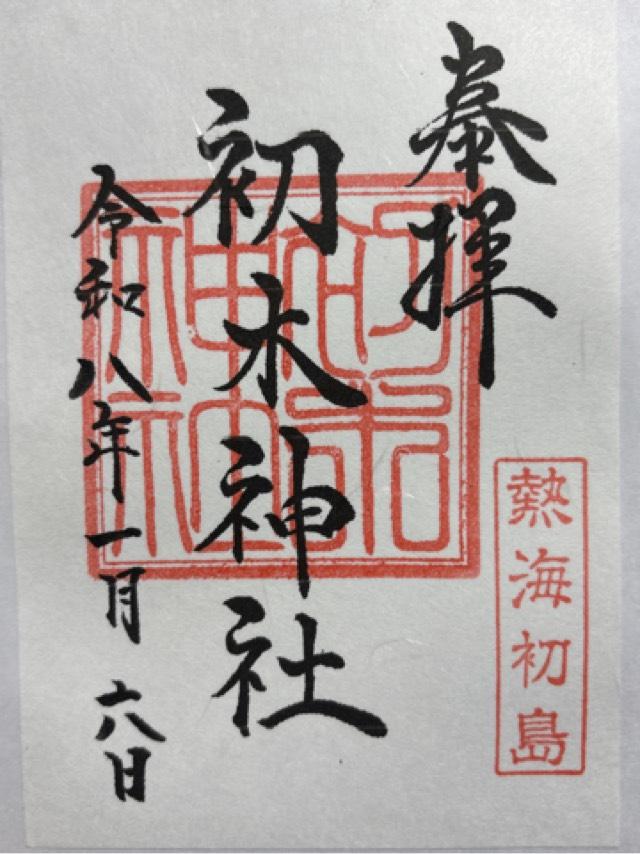 奉拝
熱海初島
初木神社
初木神社
令和八年一月六日